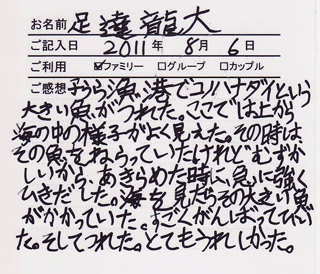 お名前 足達龍大
ご記入日 2011年 8月 6日
ご利用 ☑ファミリー □グループ □カップル
ご感想 子うら漁港でコノハナダイという
大きい魚がつれた。ここでは上から
海の中の様子がよく見えた。その時は
その魚をねらっていたけれどむずか
しいから、あきらめた時に急に強く
ひきだした。海を見たらその大きい魚
がかかっていた。すごくがんばってつ
た。そしてつれた。とてもうれしかった。